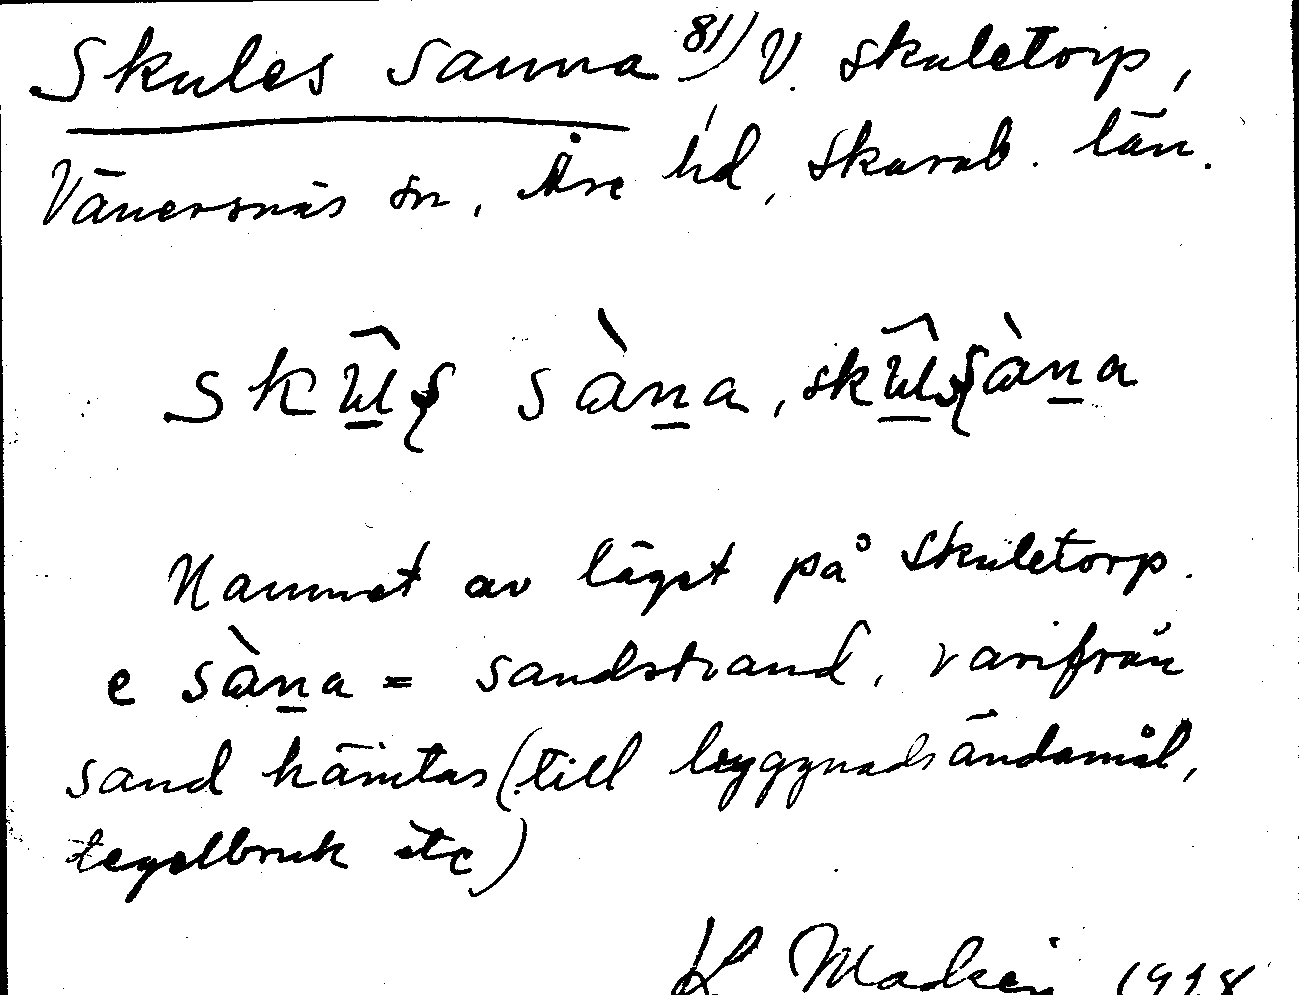 Skules sanna 81) V. Skuletorp,
Vänersnäs sn, Åse hd, Skarab. län.
skûls sàna, skûlsàna
Namnet av läget på Skuletorp.
e sàna = sandstrand, varifrån
sand hämtas (till byggnadsändamål,
tegelbruk etc)
K 1918